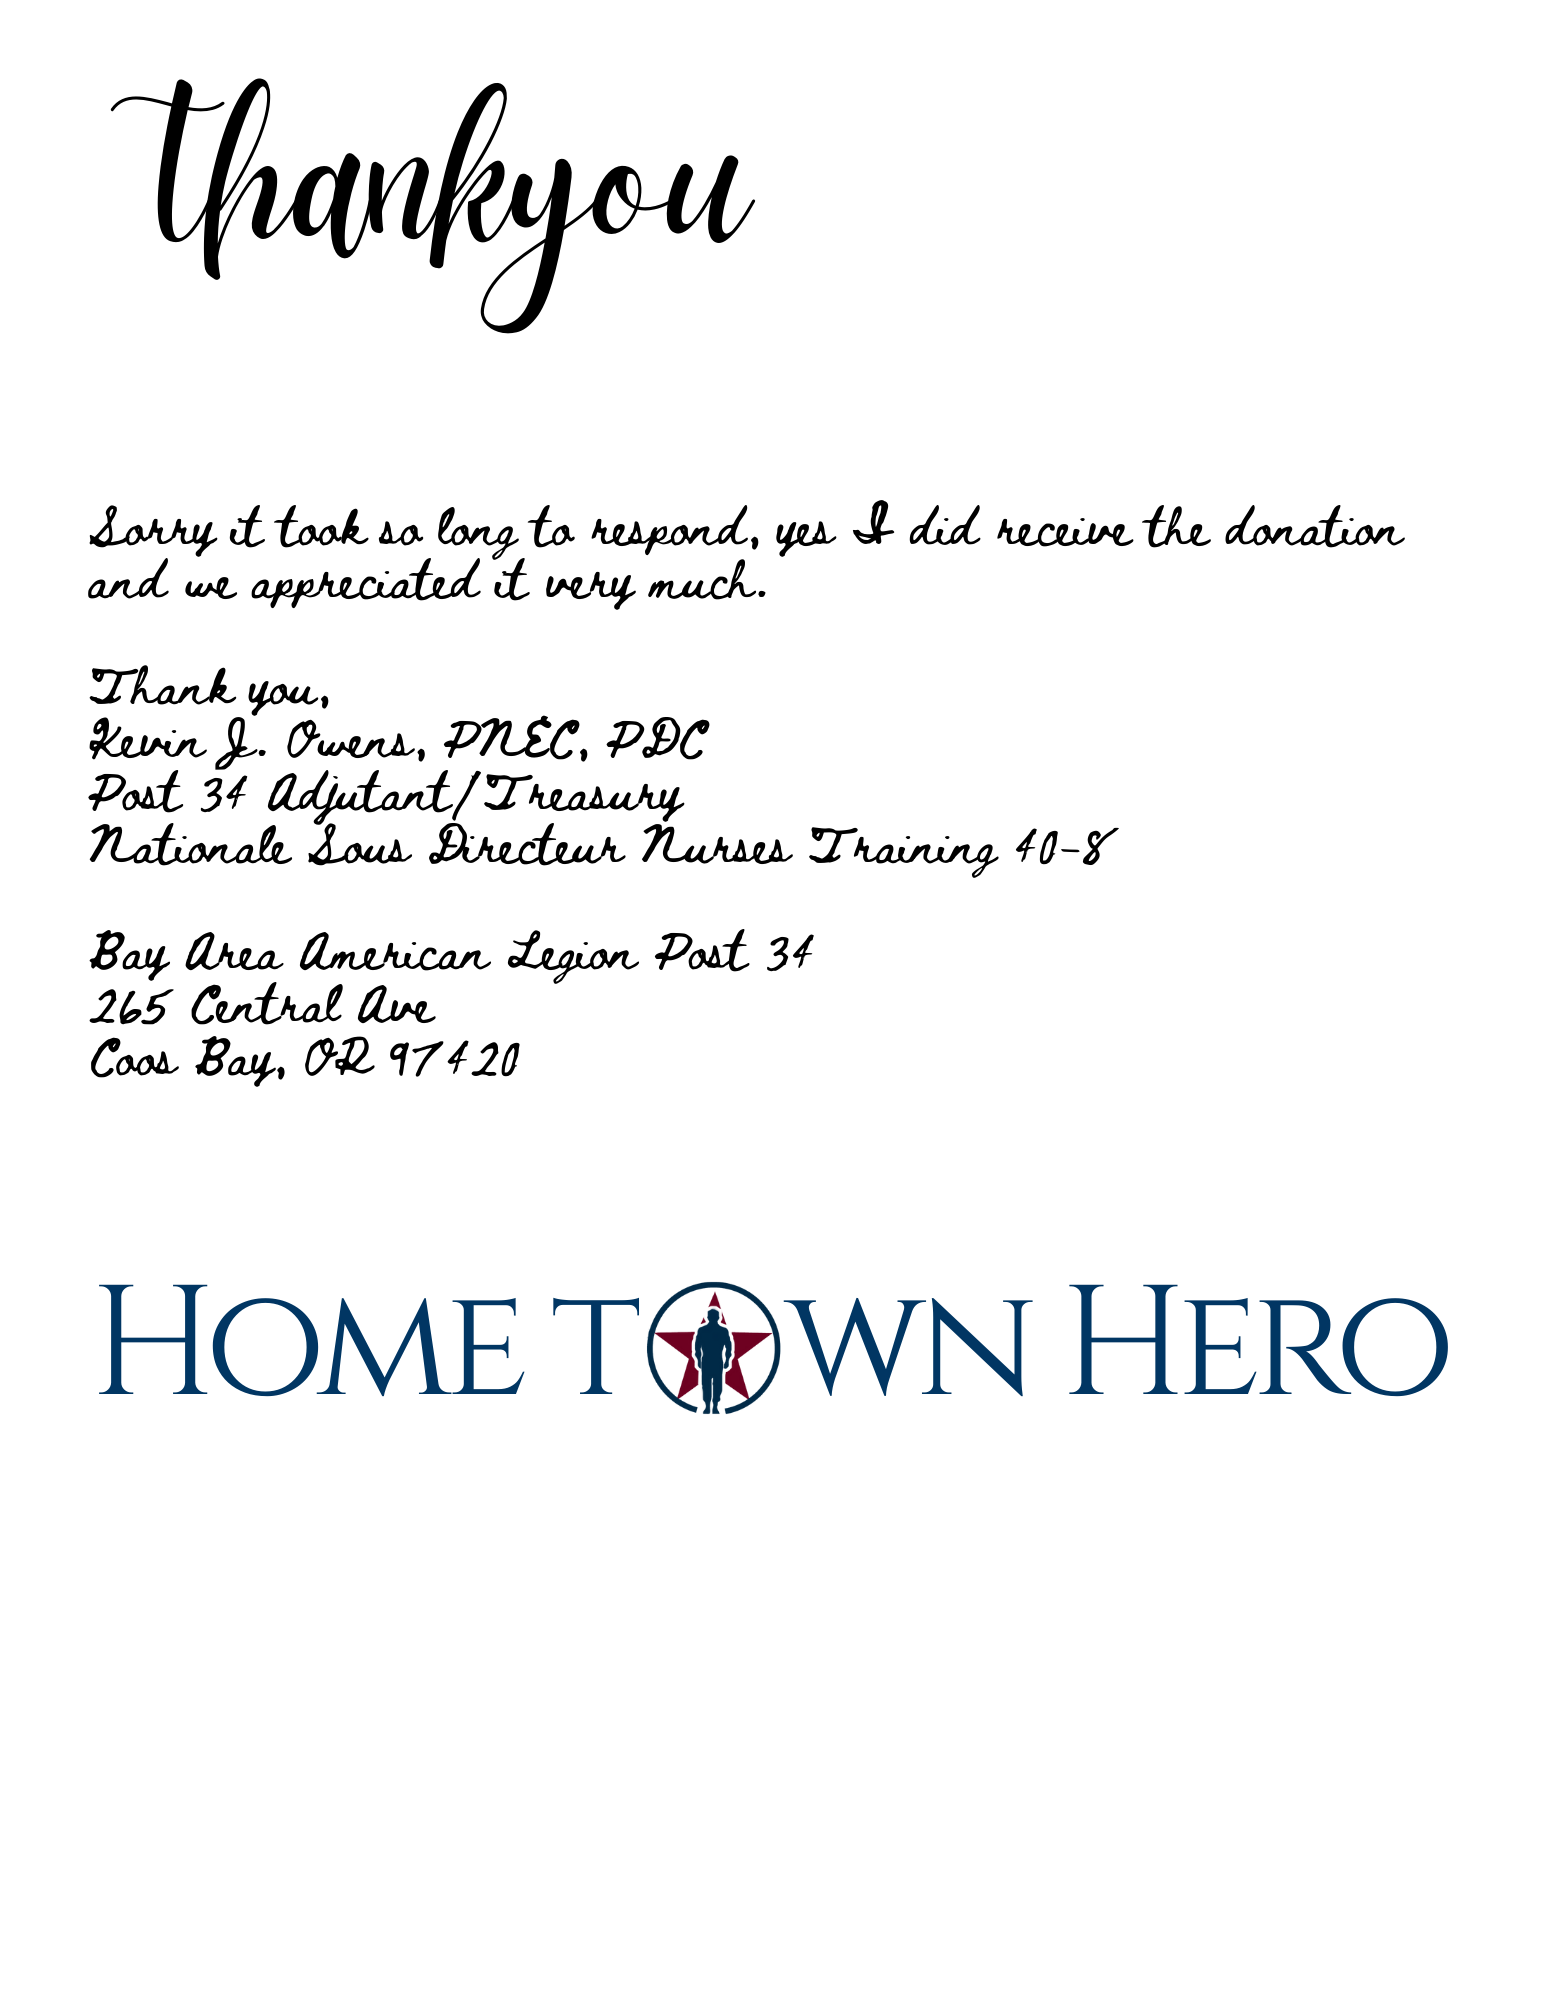 thankyou
Sorry it took so long to respond, yes I did receive the donation
and we appreciated it very much.
Thank you,
Kevin J. Owens, PNEC, PDC
Post 34 Adjutant/Treasury
Nationale Sous Directeur Nurses Training 40-8
Bay Area American Legion Post 34
265 Central Ave
Coos Bay, OR 97420
HOME TOWN HERO